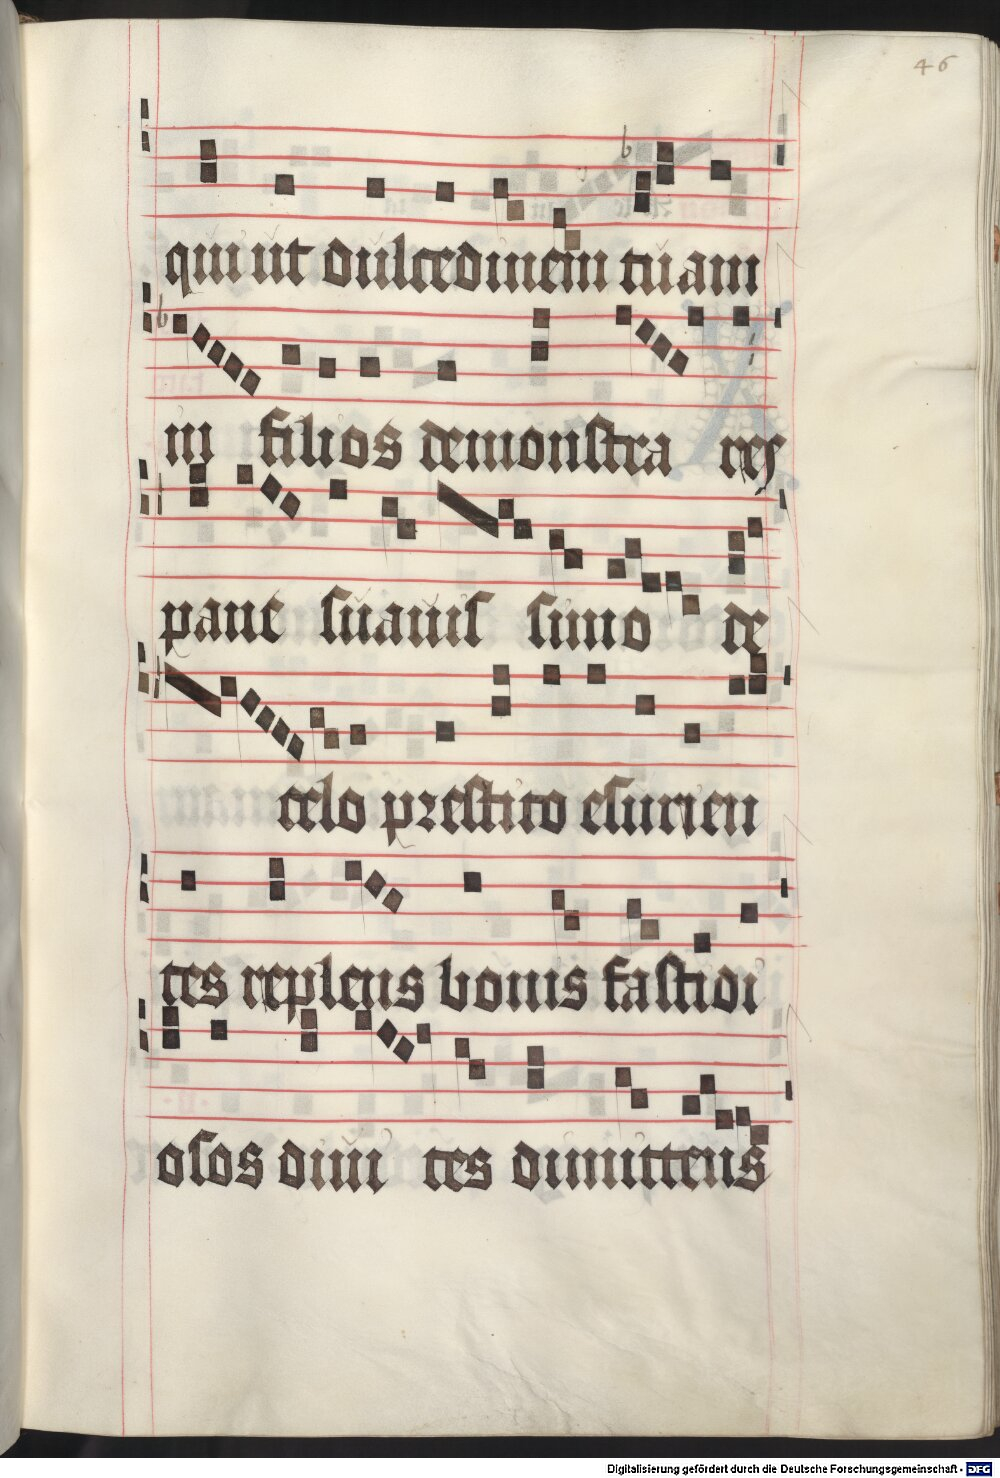 46
qui ut dulcedinem tuam
in filios demonstrares
pane suauissimo de
celo prestito esurien
tes replens bonis fastidi
osos diuites dimittens
Digitalisierung gefördert durch die Deutsche Forschungsgemeinschaft - DFG